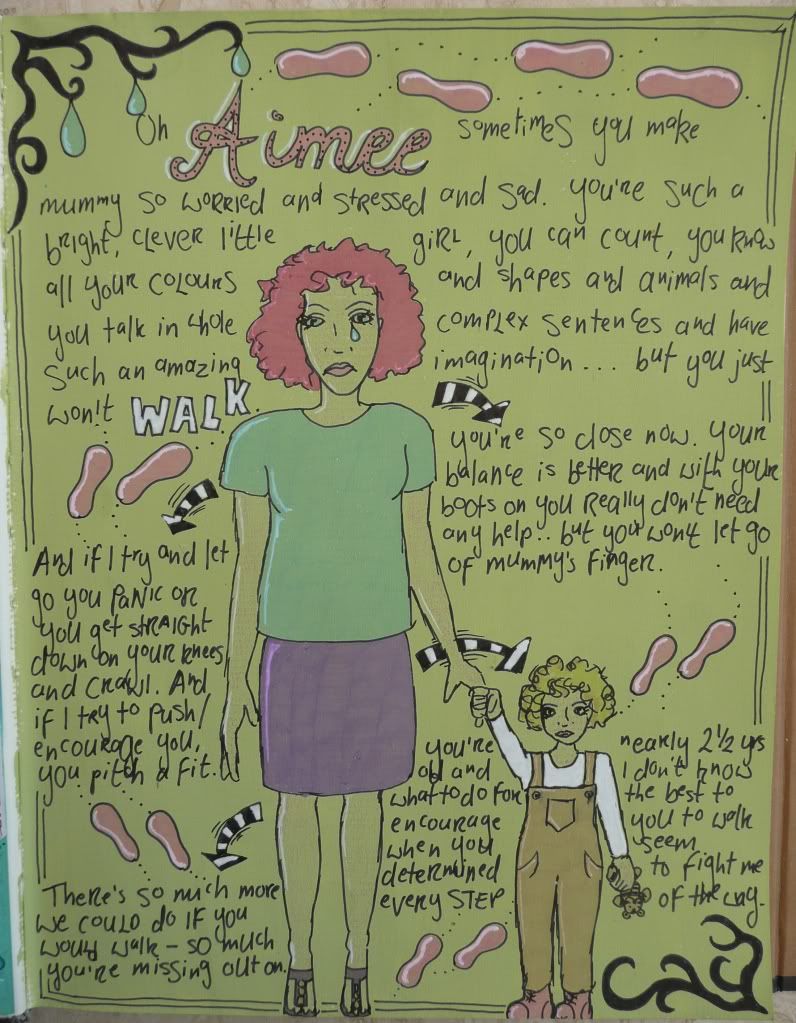 Oh Aimee sometimes you make
mummy so worried and stressed and sad. you're such a
bright, clever little girl, you can count, you know
all your colours and shapes and animals and
you talk in whole complex sentences and have
such an amazing imagination.... but you just
won't WALK.
you're so close now. your
balance is better and with your
boots on you really don't need
any help.. but you won't let go
of mummy's finger.
And if I try and let
go you panic or
you get straight
down on your knees
and crawl. And
if I try to push/
encourage you,
you pitch a fit.
you're nearly 2½ yrs
old and I don't know
what to do for the best to
encourage you to walk
when you seem
determined to fight me
every STEP of the way.
There's so much more
we could do if you
would walk - so much
you're missing out on.